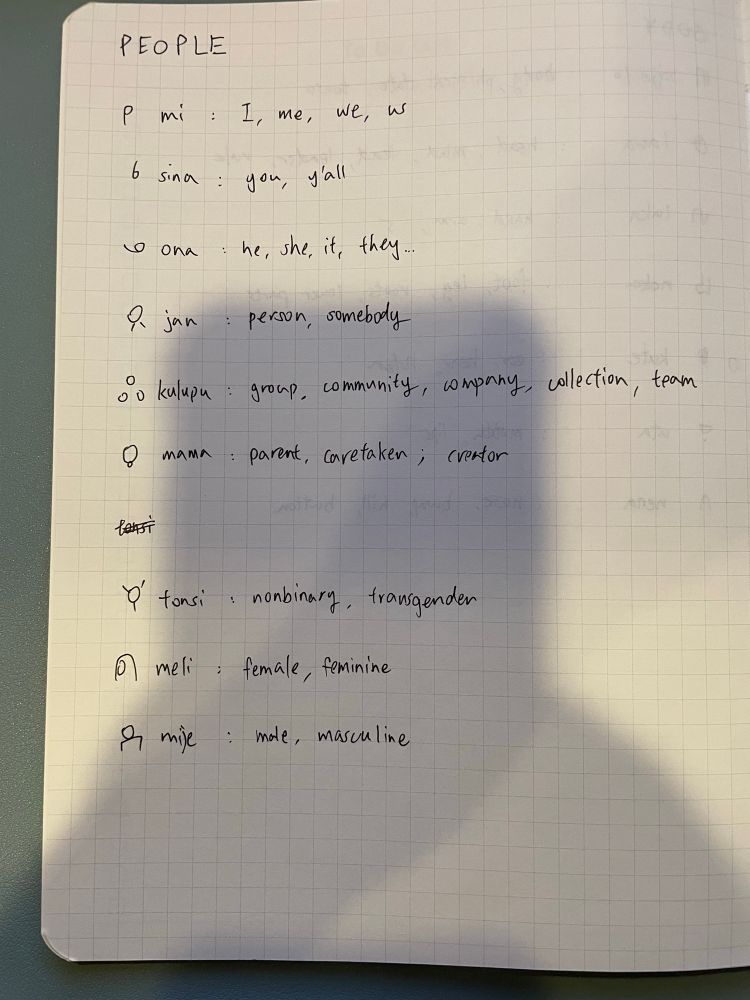 PEOPLE
mi : I, me, we, us
sina : you, y'all
ona : he, she, it, they...
jan : person, somebody
kulupu : group, community, company, collection, team
mama : parent, caretaker; creator
tonsi
tonsi : nonbinary, transgender
meli : female, feminine
mije : male, masculine